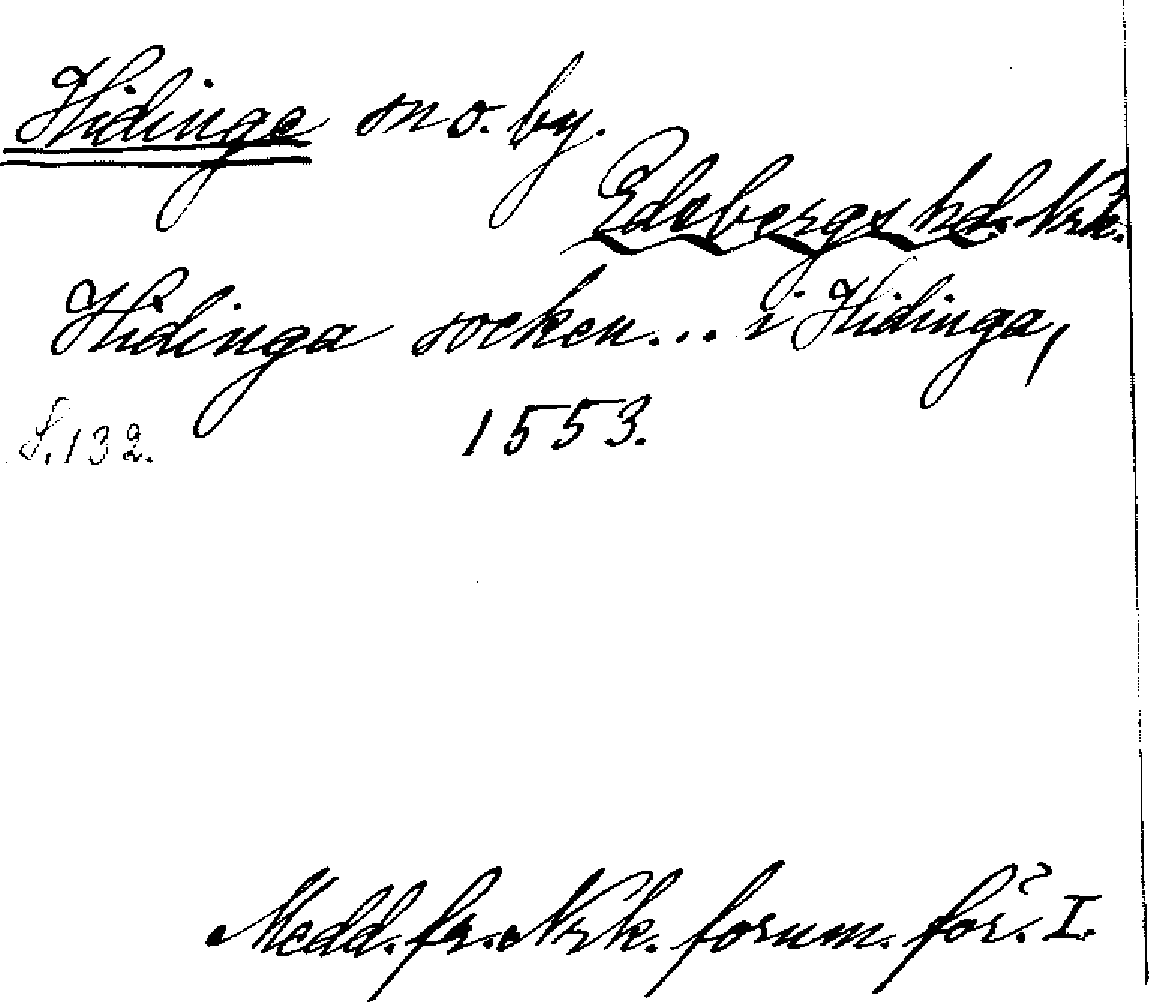 Hidinge sn o. by.
Edsbergs hd. Nrk.
Hidinga socken... i Hidinga,
S. 132. 1553.
Medd. fr. Nrk. fornm. för. I.